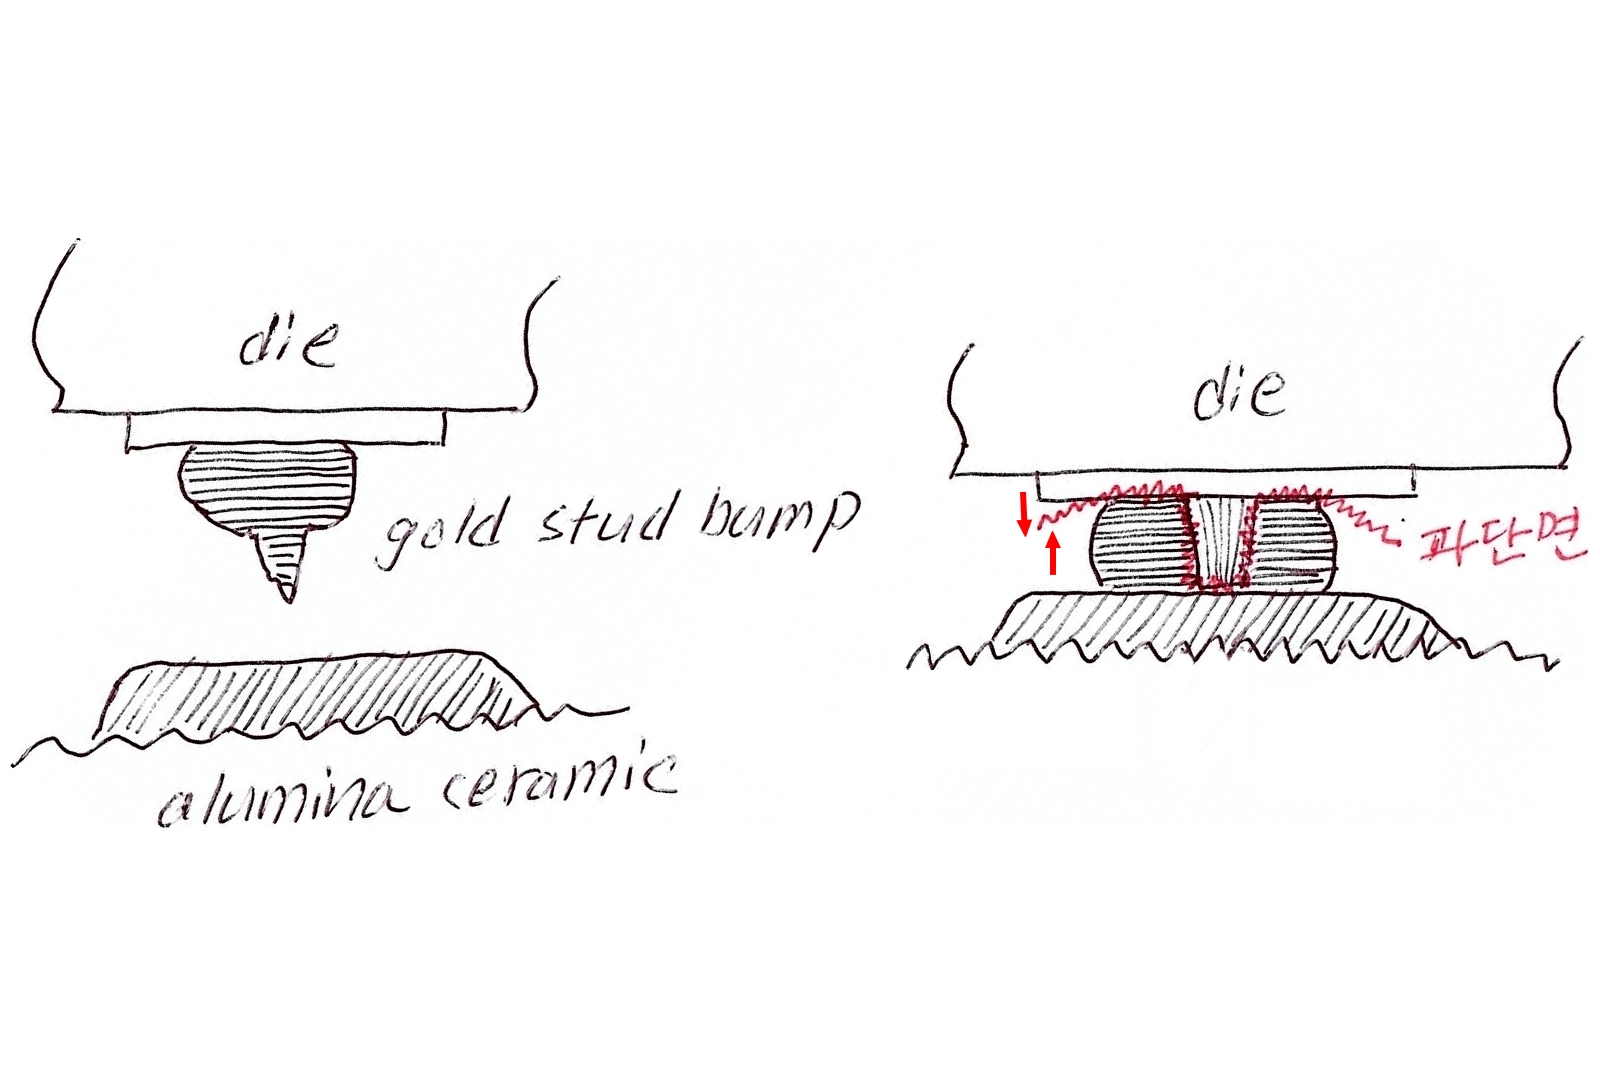 die
gold stud bump
alumina ceramic
die
파단면